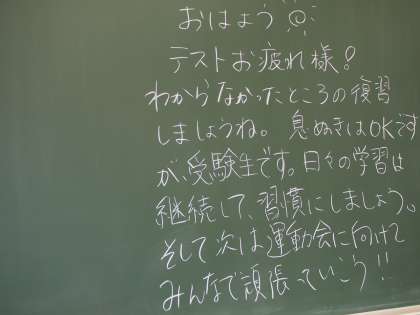 おはよう
テストお疲れ様!
わからなかったところの復習
しましょうね。息ぬきはOKです
が、受験生です。日々の学習は
継続して、習慣にしましょう。
そして次は運動会に向けて
みんなで頑張っていこう!!